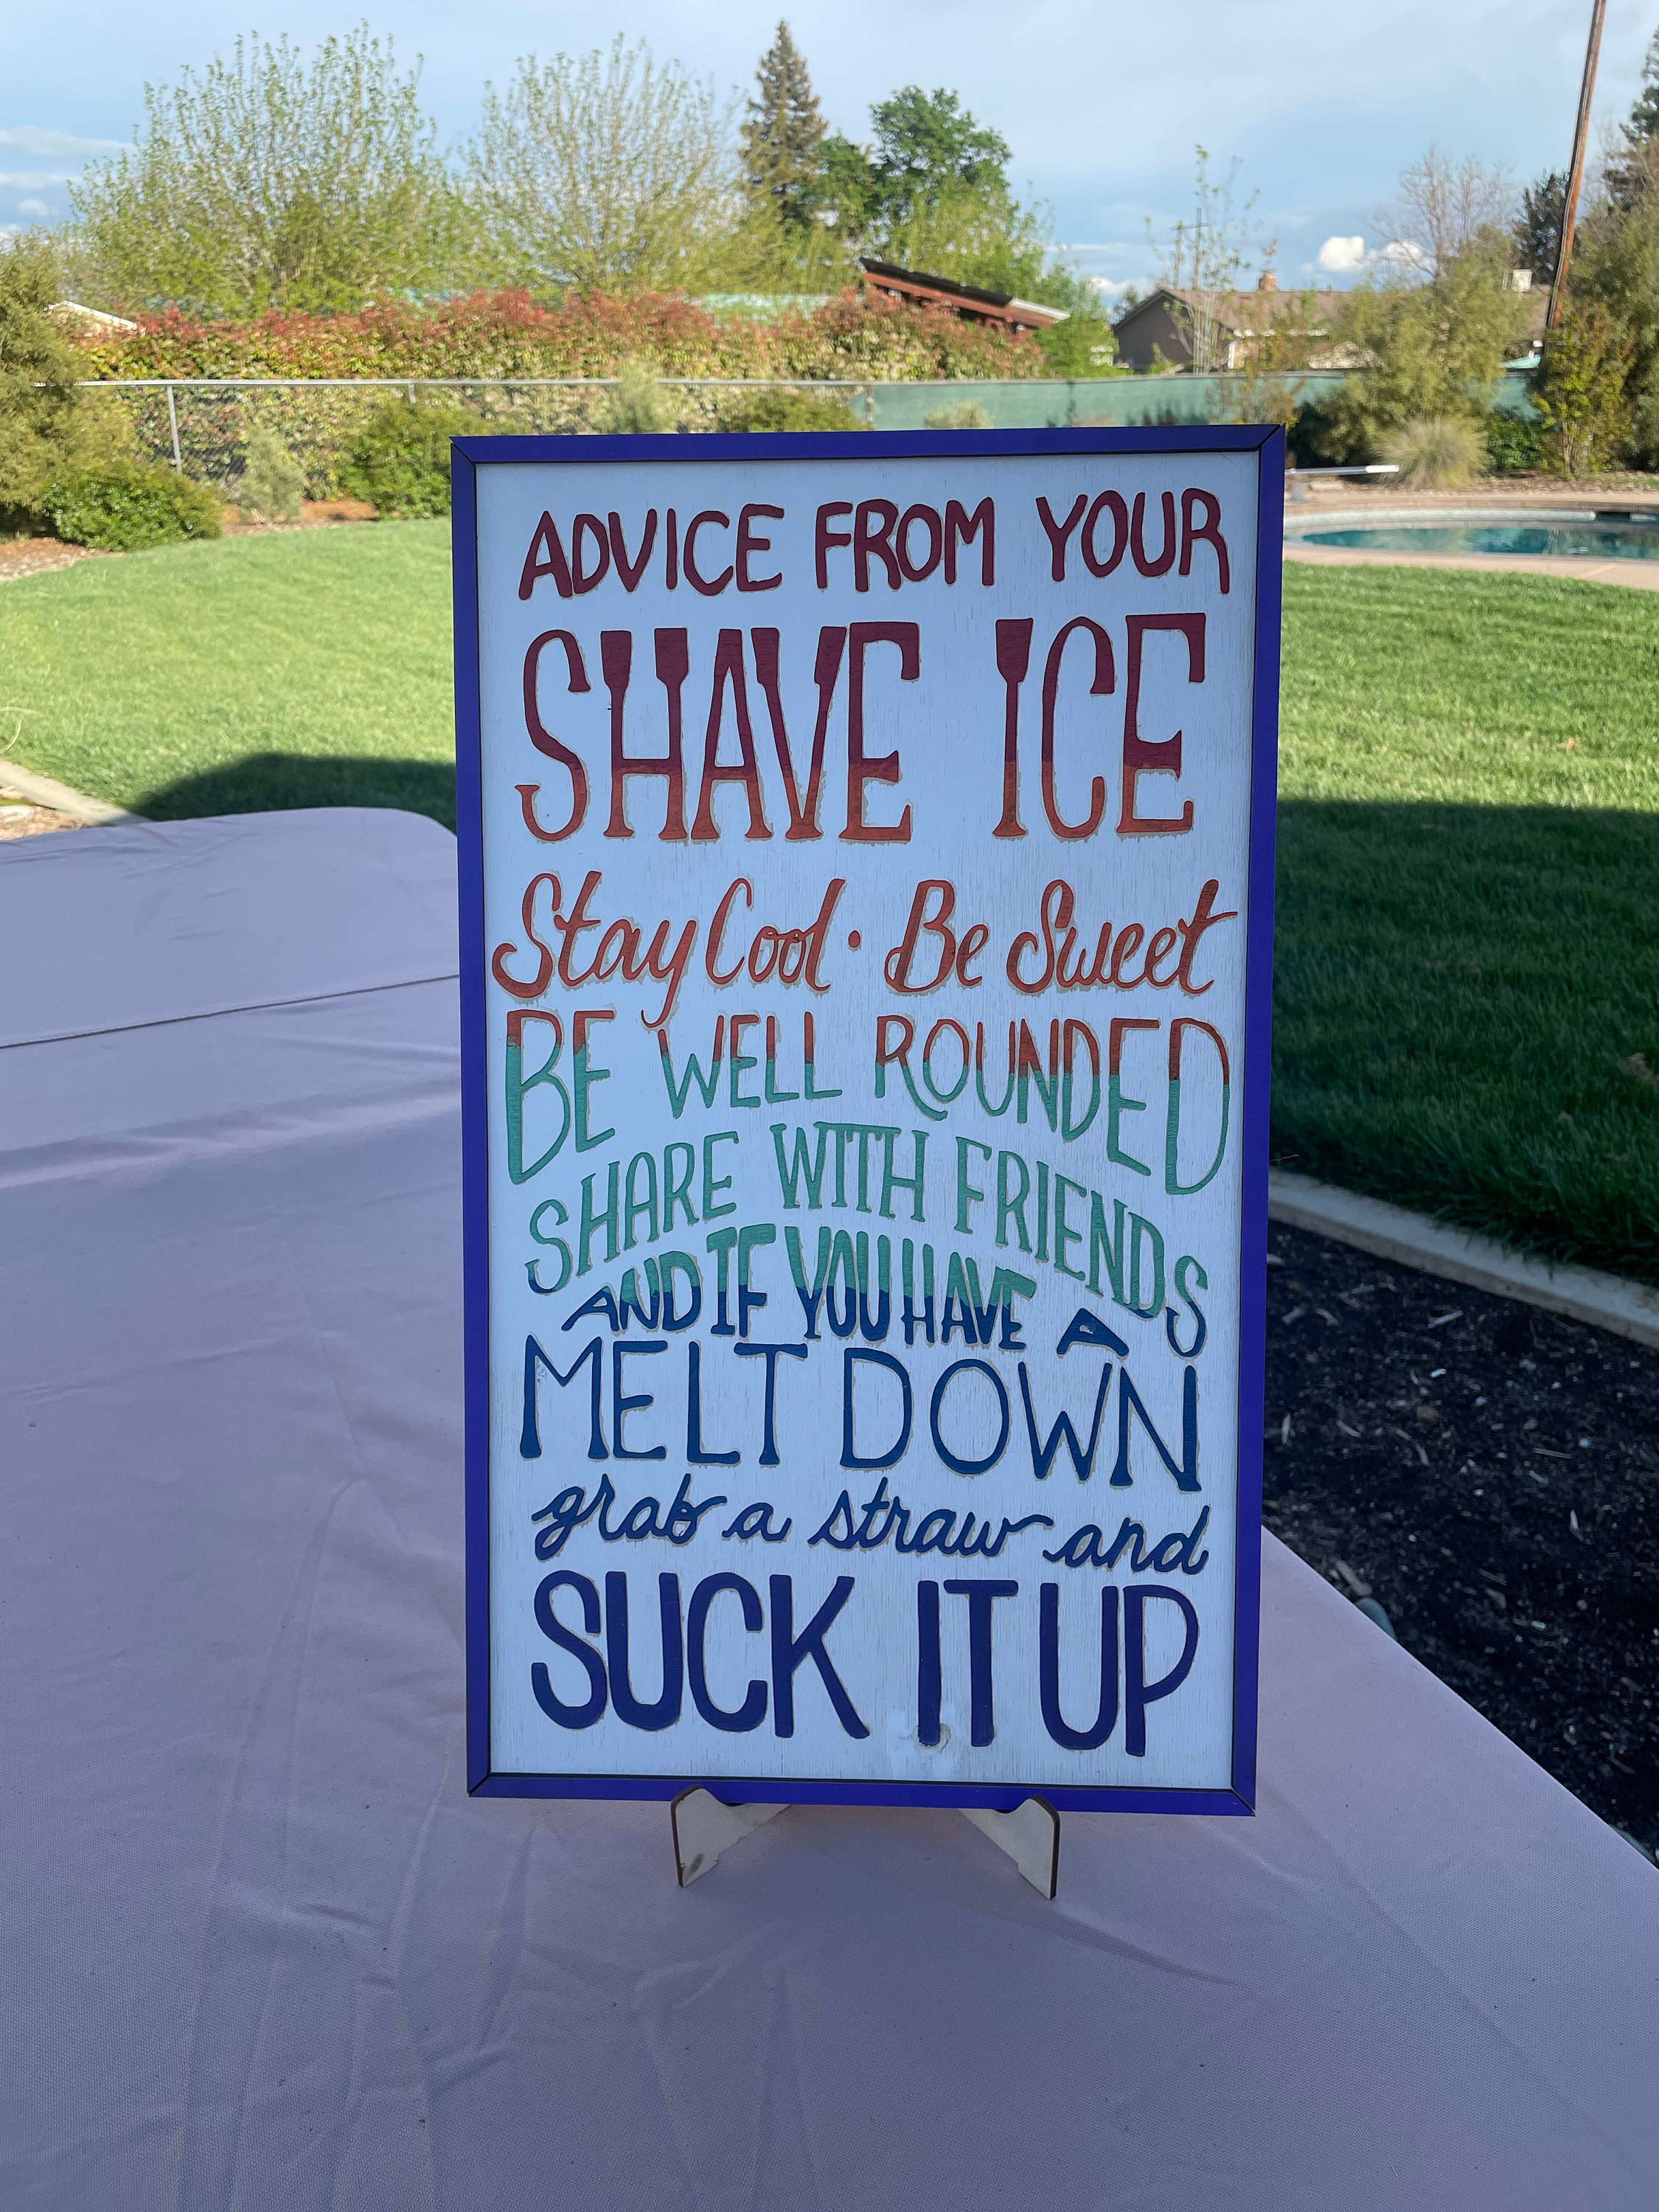 ADVICE FROM YOUR
SHAVE ICE
Stay Cool · Be Sweet
BE WELL ROUNDED
SHARE WITH FRIENDS
AND IF YOU HAVE A
MELT DOWN
grab a straw and
SUCK IT UP